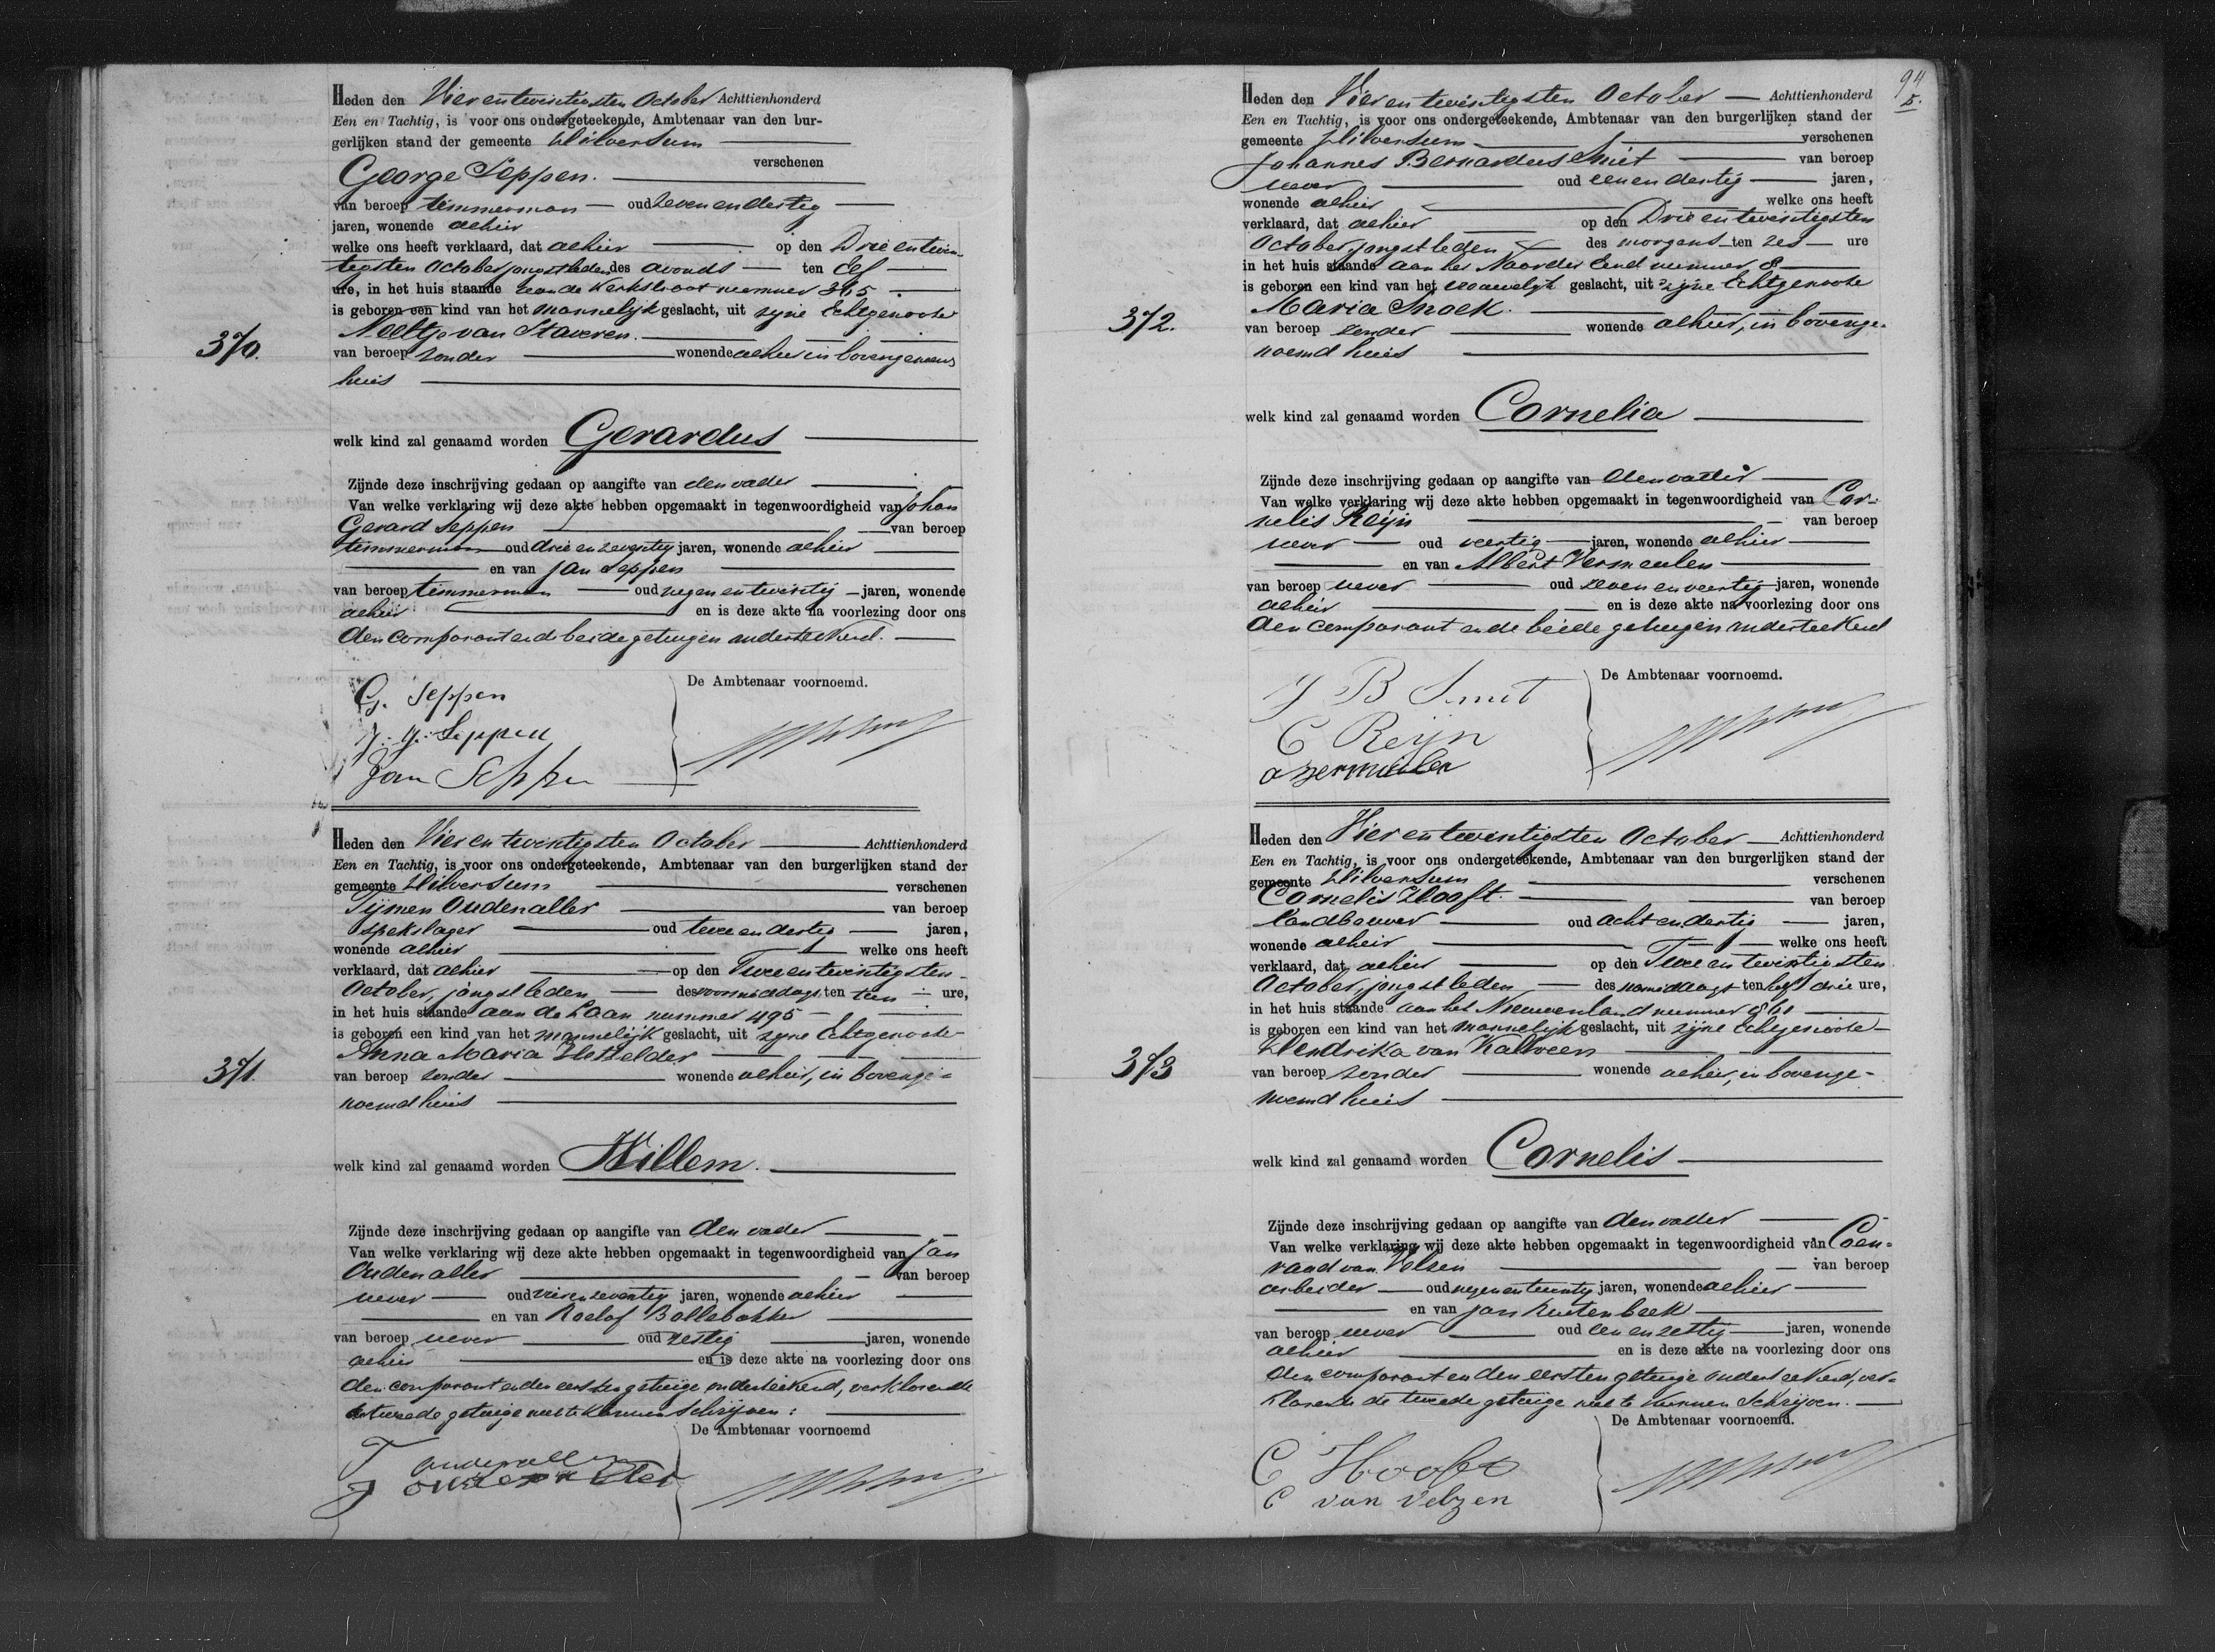 Heden den Vier en twintigsten October Achttienhonderd
Een en Tachtig, is voor ons ondergeteekende, Ambtenaar van den bur-
gerlijken stand der gemeente Hilversum
verschenen
George Seppen.
van beroep timmerman oud zeven en dertig
jaren, wonende alhier
welke ons heeft verklaard, dat alhier op den Drie en twin-
tigsten October jongstleden des avonds ten elf
ure, in het huis staande aan de Kerkstraat nummer 365
is geboren een kind van het mannelijk geslacht, uit zyne Echtgenoote
Neeltje van Staveren.
370.
van beroep zonder wonende alhier in bovengenoemd
huis
welk kind zal genaamd worden Gerardus
Zijnde deze inschrijving gedaan op aangifte van den vader
Van welke verklaring wij deze akte hebben opgemaakt in tegenwoordigheid van Johan
Gerard Seppen van beroep
timmerman oud drie en zeventig jaren, wonende alhier
en van Jan Seppen
van beroep timmerman oud negen en twintig jaren, wonende
alhier en is deze akte na voorlezing door ons
den comparant en de beide getuigen onderteekend.
De Ambtenaar voornoemd.
G. Seppen
J. G. Seppen
Jan Seppen
Heden den Vier en twintigsten October Achttienhonderd
Een en Tachtig, is voor ons ondergeteekende, Ambtenaar van den burgerlijken stand der
gemeente Hilversum verschenen
Tijmen Oudenaller van beroep
spekslager oud twee en dertig jaren,
wonende alhier welke ons heeft
verklaard, dat alhier op den Twee en twintigsten
October, jongstleden des voormiddags ten tien ure,
in het huis staande aan de Laan nummer 495
is geboren een kind van het mannelijk geslacht, uit zyne Echtgenoote
Anna Maria
371.
van beroep zonder wonende alhier, in bovenge-
noemd huis
welk kind zal genaamd worden Willem.
Zijnde deze inschrijving gedaan op aangifte van den vader
Van welke verklaring wij deze akte hebben opgemaakt in tegenwoordigheid van Jan
Oudenaller van beroep
wever oud zeventig jaren, wonende alhier
en van Roelof Bollebakker
van beroep wever oud zestig jaren, wonende
alhier en is deze akte na voorlezing door ons
den comparant en den eersten getuige onderteekend, verklarende
de tweede getuige niet te kunnen schrijven:
De Ambtenaar voornoemd
T oudenaller
J
94
Heden den Vier en twintigsten October Achttienhonderd
Een en Tachtig, is voor ons ondergeteekende, Ambtenaar van den burgerlijken stand der
gemeente Hilversum verschenen
Johannes Bernardus Smit van beroep
wever oud een en dertig jaren,
wonende alhier welke ons heeft
verklaard, dat alhier op den Drie en twintigsten
October, jongstleden des morgens ten zes ure
in het huis staande aan het Naarder Eind nummer 8
is geboren een kind van het vrouwelijk geslacht, uit zijne Echtgenoote
Maria Snoek.
372.
van beroep zonder wonende alhier, in bovenge-
noemd huis
welk kind zal genaamd worden Cornelia
Zijnde deze inschrijving gedaan op aangifte van den vader
Van welke verklaring wij deze akte hebben opgemaakt in tegenwoordigheid van Cor-
nelis Reijn van beroep
wever oud veertig jaren, wonende alhier
en van Albert Vermeulen
van beroep wever oud zeven en veertig jaren, wonende
alhier en is deze akte na voorlezing door ons
den comparant en de beide getuigen onderteekend
De Ambtenaar voornoemd.
J B Smit
C Reijn
a vermeulen
Heden den Vier en twintigsten October Achttienhonderd
Een en Tachtig, is voor ons ondergeteekende, Ambtenaar van den burgerlijken stand der
gemeente Hilversum verschenen
Cornelis Hooft. van beroep
landbouwer oud acht en dertig jaren,
wonende alhier welke ons heeft
verklaard, dat alhier op den Twee en twintigsten
October, jongstleden des namiddags ten half drie ure,
in het huis staande aan het Nieuwenland nummer
is geboren een kind van het mannelijk geslacht, uit zijne Echtgenoote
Hendrika van Kalveen
373
van beroep zonder wonende alhier, in bovenge-
noemd huis
welk kind zal genaamd worden Cornelis
Zijnde deze inschrijving gedaan op aangifte van den vader
Van welke verklaring wij deze akte hebben opgemaakt in tegenwoordigheid van Coen-
raad van Velsen van beroep
arbeider oud negen en twintig jaren, wonende alhier
en van Jan Ruitenbeek
van beroep wever oud een en zestig jaren, wonende
alhier en is deze akte na voorlezing door ons
den comparant en den eersten getuige onderteekend, ver-
klarende de tweede getuige niet te kunnen schrijven.
De Ambtenaar voornoemd.
C Hooft
C van Velzen